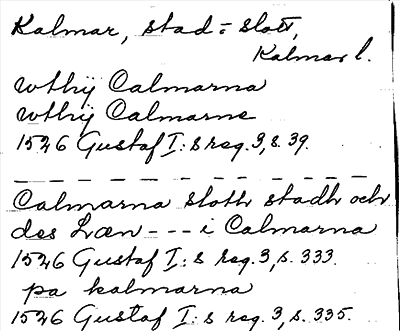 Kalmar, stad o slott,
Kalmar l.
wthij Calmarna
wthij Calmarne
1526 Gustaf I:s reg. 3, s. 39.
Calmarna sloth stadh och
des Læn --- i Calmarna
1526 Gustaf I:s reg. 3, s. 333.
pa kalmarna
1526 Gustaf I:s reg. 3, s. 335.